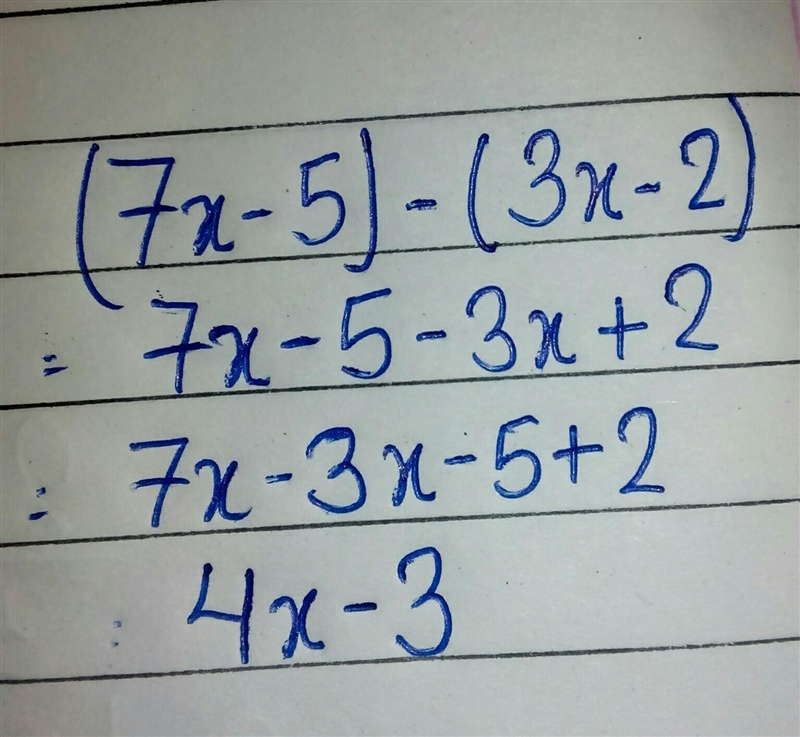 (7x - 5) - (3x - 2)
= 7x - 5 - 3x + 2
= 7x - 3x - 5 + 2
: 4x - 3